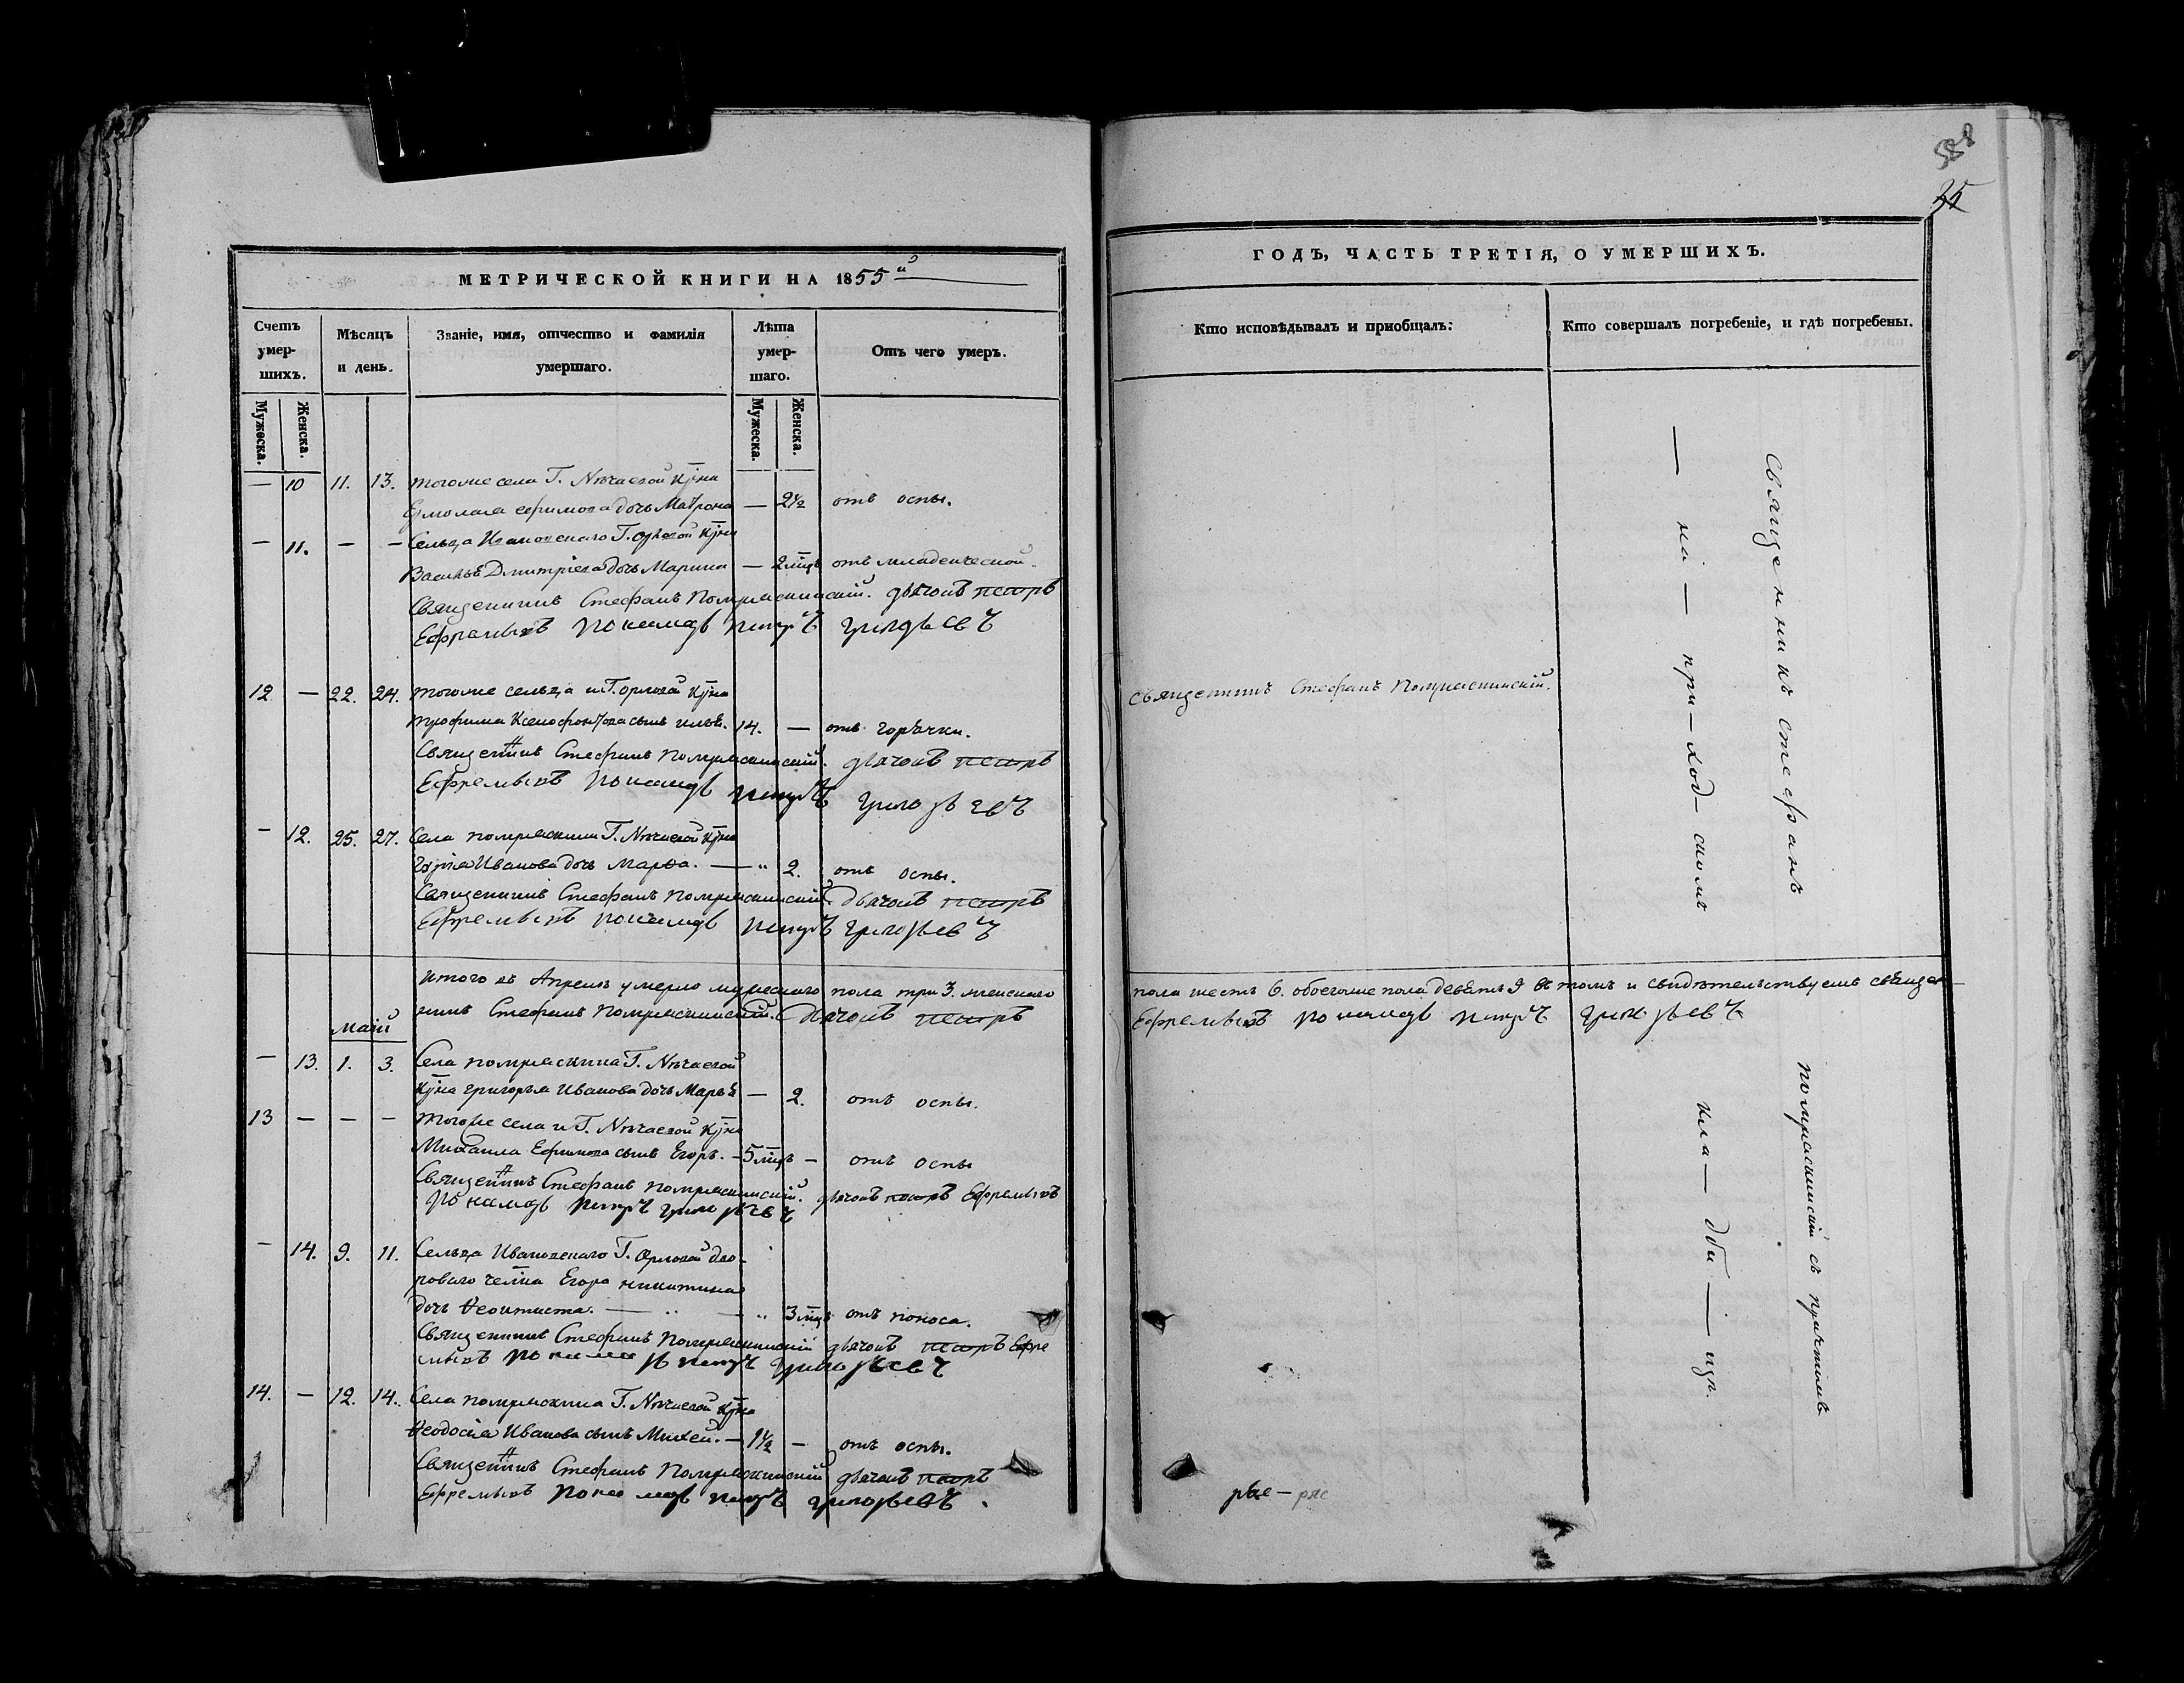 588
35
МЕТРИЧЕСКОЙ КНИГИ НА 1855й
Счетъ умер-шихъ.
Мѣсяцъ и день.
Званіе, имя, отчество и фамилія умершаго.
Лѣта умер-шаго.
Отъ чего умеръ.
Мужеска.
Женска.
Мужеска.
Женска.
— 10 11. 13. тогоже села Г. Нѣчаевой кр̄на
Ермолая Ефимова дочь Матрона — 2½ отъ оспы.
— 11. — — Сельца Ивановскаго Г. Орловой кр̄на
Василья Дмитріева дочь Марина — 2 мц̄ъ отъ младенческой.
Священникъ Стефанъ Помряскинскій. дьячокъ петръ
Ефремывъ Пономарь петръ Григорьевъ
12 — 22. 24. тогоже сельца и Г. Орловой кр̄на
трофима Ксенофонтова сынъ илья. 14. — отъ горячки.
Священникъ Стефанъ Помряскинскій. дьячокъ петръ
Ефремывъ Пономарь петръ Григорьевъ
— 12. 25. 27. Села помряскина Г. Нѣчаевой кр̄на
Гурія Иванова дочь Марѳа. — " 2. отъ оспы.
Священникъ Стефанъ Помряскинскій дьячокъ петръ
Ефремывъ пономарь петръ Григорьевъ
итого въ Апрелѣ умерло мужескаго пола три 3. женскаго
никъ Стефанъ Помряскинскій. Дьячокъ петръ
Маій
— 13. 1. 3. Села помряскина Г. Нѣчаевой
кр̄на григорья Иванова дочь Марья — 2. отъ оспы.
13 — — — тогоже села и Г. Нѣчаевой кр̄на
Михаила Ефимова сынъ Егоръ. — 5 мц̄ъ — отъ оспы
Священникъ Стефанъ помряскинскій. дьячокъ петръ Ефремывъ
Пономарь петръ григорьевъ
— 14. 9. 11. Сельца Ивановскаго Г. Орловой дво-
роваго чел̄ка Егора никитина
дочь Ѳеоктиста. — " — " 3 мц̄ъ отъ поноса.
Священникъ Стефанъ Помряскинскій дьячокъ петръ Ефре
мывъ Пономарь петръ Григорьевъ
14. — 12. 14. Села помряскина Г. Нѣчаевой кр̄на
Ѳеодосія Иванова сынъ Михей. — 1½ — отъ оспы.
Священникъ Стефанъ Помряскинскій дьячокъ петръ
Ефремывъ Пономарь петръ григорьевъ.
ГОДЪ, ЧАСТЬ ТРЕТІЯ, О УМЕРШИХЪ.
Кто исповѣдывалъ и пріобщалъ:
Кто совершалъ погребеніе, и гдѣ погребены.
Священникъ Стефанъ Помряскинскій.
Священникъ Стефанъ
— на — при — ход — скомъ
пола шесть 6. обоегоже пола девять 9 въ томъ и свидѣтельствуемъ священ—
Ефремывъ Пономарь петръ Григорьевъ
помряскинскій съ причтомъ
кла — дби — щѣ.